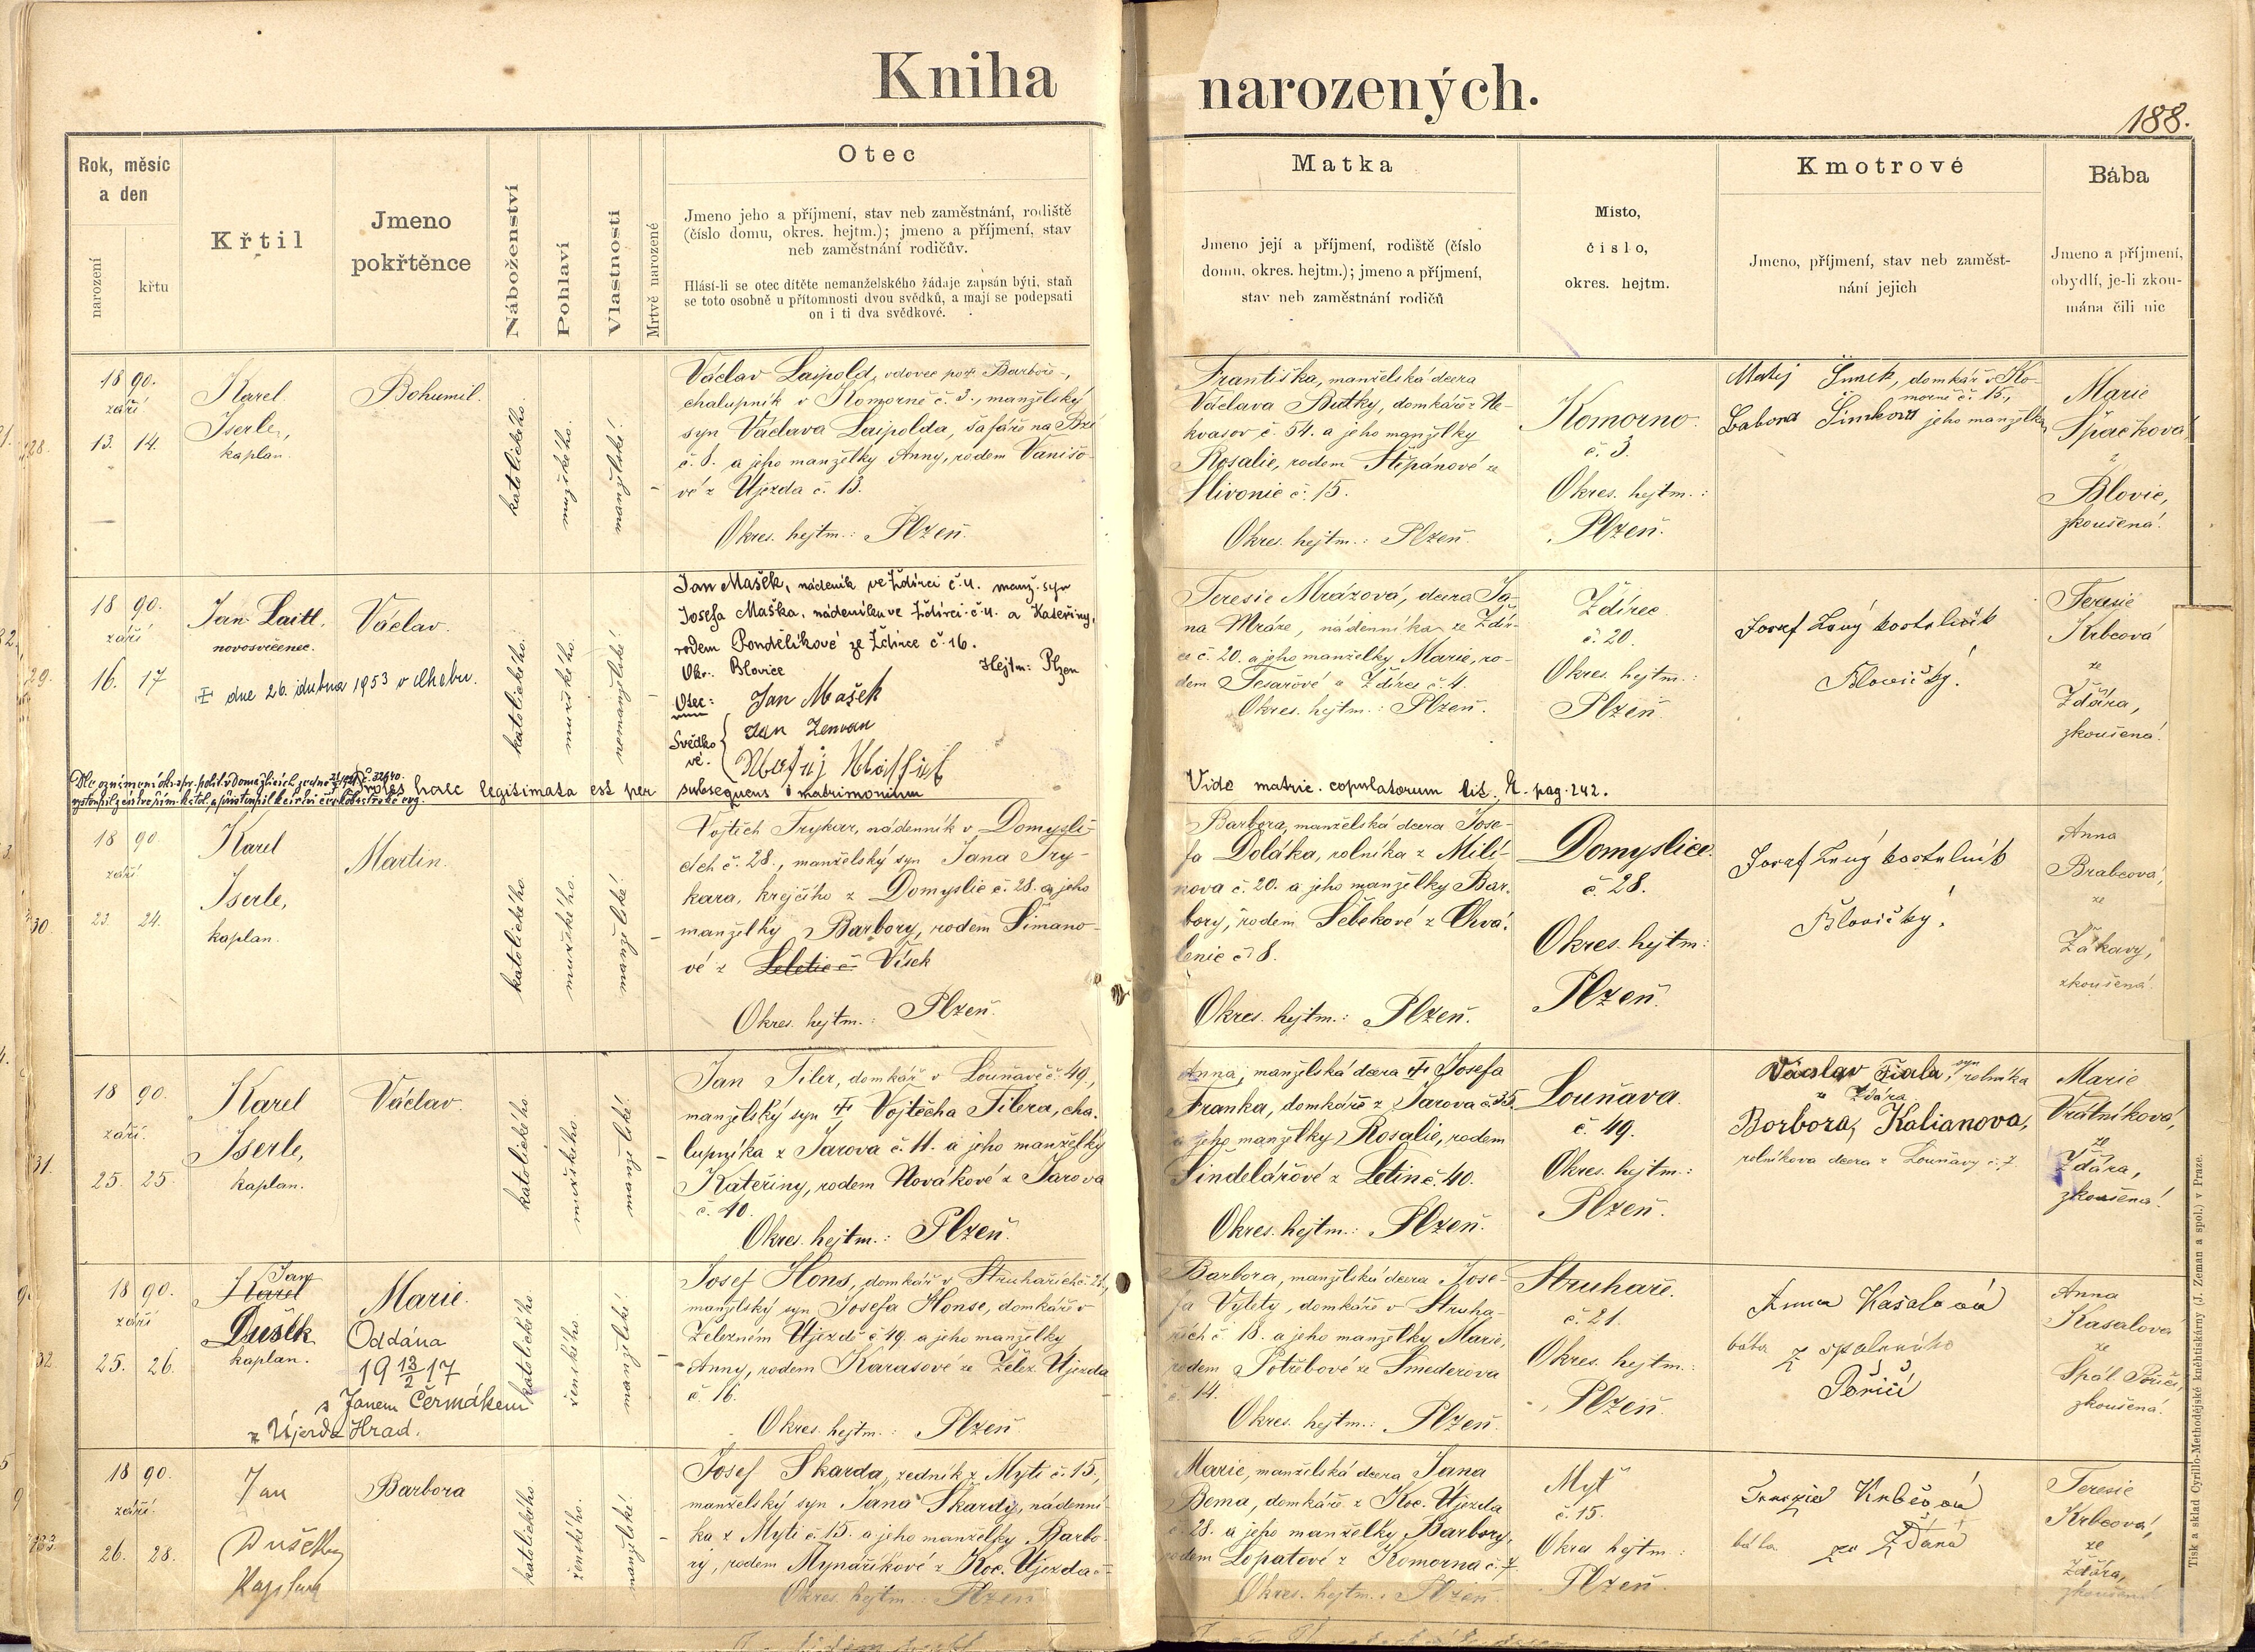 Kniha narozených.
188.
Rok, měsíc
a den
narození
křtu
Křtil
Jmeno
pokřtěnce
Náboženství
Pohlaví
Vlastnosti
Mrtvě narozené
Otec
Jmeno jeho a příjmení, stav neb zaměstnání, rodiště
(číslo domu, okres. hejtm.); jmeno a příjmení, stav
neb zaměstnání rodičův.
Hlásí-li se otec dítěte nemanželského žádaje zapsán býti, staň
se toto osobně u přítomnosti dvou svědků, a mají se podepsati
on i ti dva svědkové.
Matka
Jmeno její a příjmení, rodiště (číslo
domu, okres. hejtm.); jmeno a příjmení,
stav neb zaměstnání rodičů
Místo,
číslo,
okres. hejtm.
Kmotrové
Jmeno, příjmení, stav neb zaměst-
nání jejich
Bába
Jmeno a příjmení,
obydlí, je-li zkou-
mána čili nic
28.
1890.
září
13. 14.
Karel
Iserle,
kaplan.
Bohumil.
katolického.
mužského.
manželské.
Václav Laipold, vdovec po Barboře,
chalupník v Komorně č. 3., manželský
syn Václava Laipolda, šafáře na
č. 8. a jeho manželky Anny, rodem Vaníšo-
vé z Újezda č. 13.
Okres. hejtm.: Plzeň.
Františka, manželská dcera
Václava Buťky, domkáře z Ne-
kvasov č. 54. a jeho manželky
Rosalie, rodem Štěpánové z
Slivonic č. 15.
Okres. hejtm.: Plzeň.
Komorno.
č. 3.
Okres. hejtm.:
Plzeň.
Matěj domkář v Ko-
morně č. 15.,
jeho manželka
Marie
Špačková
z
Blovic,
zkoušená.
29.
1890.
září
16. 17
Jan Laitl,
novosvěcenec.
Václav.
† dne 26. dubna 1953 v Chebu.
katolického.
mužského.
nemanželské.
Jan Mašek, nádeník ve Ždírci č. 4. manž. syn
Josefa Maška, nádeníka ve Ždírci č. 4. a Kateřiny,
rodem Pondělíkové ze Ždírce č. 16.
Okr. Blovice Hejtm: Plzen
Otec: Jan Mašek
Svědko
vé. Jan Zeman
Proles haec legitimata est per subsequens matrimonium
Vide matric. copulatorum lit. pag. 242.
Teresie Mrázová, dcera Ja-
na Mráze, nádenníka ze Ždír-
ce č. 20. a jeho manželky Marie, ro-
dem Tesařové z Ždírce č. 4.
Okres. hejtm.: Plzeň.
Ždírec
č. 20.
Okres. hejtm.:
Plzeň.
Josef kostelník
Blovický.
Terasie
Krbcová
ze
Ždára,
zkoušená.
30.
1890.
září
23. 24.
Karel
Iserle,
kaplan.
Martin.
katolického.
mužského.
manželské.
Vojtěch Trykar, nádenník v Domysli-
cích č. 28., manželský syn Jana Try-
kara, krejčího z Domyslic č. 28. a jeho
manželky Barbory, rodem Šimano-
vé z Letetic č. Vísek
Okres. hejtm.: Plzeň.
Barbora, manželská dcera Jose-
fa Doláka, rolníka z Milí-
nova č. 20. a jeho manželky Bar-
bory, rodem Šebekové z Chvá-
lenic č. 8.
Okres. hejtm.: Plzeň.
Domyslice.
č. 28.
Okres. hejtm:
Plzeň.
Josef kostelník
Blovický.
Anna
Brabcová,
ze
Žákavy,
zkoušená.
31.
1890.
září.
25. 25.
Karel
Iserle,
kaplan.
Václav.
katolického
mužského
manželské.
Jan Tiler, domkář v Louňavě č. 49.,
manželský syn † Vojtěcha Tilera, cha-
lupníka z Jarova č. 11. a jeho manželky
Kateřiny, rodem Novákové z Jarova
č. 40.
Okres. hejtm.: Plzeň.
Anna, manželská dcera † Josefa
Franka, domkáře z Jarova č. 35
a jeho manželky Rosalie, rodem
Šindelářové z Letin č. 40.
Okres. hejtm.: Plzeň.
Louňava.
č. 49.
Okres. hejtm.:
Plzeň.
Václav Fiala, syn rolníka
z Ždára
Borbora, Kalianova,
rolníkova dcera z Louňavy č. 7
Marie
Vrátníková,
ze
Ždára,
zkoušená.
32.
1890.
září
25. 26.
Jan
Karel
Dušek
kaplan.
Marie.
Oddána
19 13/2 17
s Janem Čermákem
z Újezda Hrad.
katolického
ženského.
manželské.
Josef Hons, domkář v Struhařích č. 21.,
manželský syn Josefa Honse, domkáře v
Železném Újezdě č. 49. a jeho manželky
Anny, rodem Karasové ze Želez. Újezda
č. 16.
Okres. hejtm.: Plzeň
Barbora, manželská dcera Jose-
fa Výlety, domkáře v Struha-
řích č. 18. a jeho manželky Marie,
rodem Potřebové ze Smederova
č. 14.
Okres. hejtm.: Plzeň.
Struhaře.
č. 21.
Okres. hejtm.:
Plzeň.
Anna Kasalová
bába z spáleného
Poříčí
Anna
Kasalova
ze
Spál. Poříčí,
zkoušená.
1890.
září.
26. 28.
Jan
Dušek
Kaplan
Barbora
katolického
ženského.
manželské.
Josef Škarda, zedník z Mýti č. 15.,
manželský syn Jana Škardy, nádenní-
ka z Mýti č. 15. a jeho manželky Barbo-
ry, rodem Mynaříkové z Koc. Újezda č.
Okres. hejtm.: Plzeň
Marie, manželská dcera Jana
Bema, domkáře z Koc. Újezda
č. 28. a jeho manželky Barbory,
rodem Lopatové z Komorna č. 7
Okres. hejtm.: Plzeň.
Mýť
č. 15.
Okres hejtm.:
Plzeň.
Krbcová
bába ze
Teresie
Krbcová,
ze
Ždára,
zkoušená
Tisk a sklad Cyrillo-Methodějské kněhtiskárny (J. Zeman a spol.) v Praze.